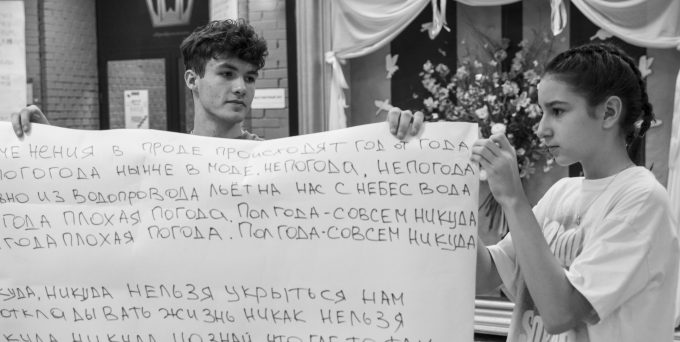 МЕНЕНИЯ В ПРОДЕ ПРОИСХОДЯТ ГОД ОТ ГОДА
ПОГОГОДА НЫННЕ В МОДЕ, НЕПОГОДА, НЕПОГОДА
ЬНО ИЗ ВОДОПРОВОДА ЛЬЁТ НА НАС С НЕБЕС ВОДА
ГОДА ПЛОХАЯ ПОГОДА, ПОЛГОДА-СОВСЕМ НИКУДА
ГОДА ПЛОХАЯ ПОГОДА, ПОЛГОДА-СОВСЕМ НИКУДА
КУДА, НИКУДА НЕЛЬЗЯ УКРЫТЬСЯ НАМ
ОТКЛАДЫВАТЬ ЖИЗНЬ НИКАК НЕЛЬЗЯ
КУДА НИКУДА НО ЗНАЙ ЧТО ГДЕ-ТО ТАМ